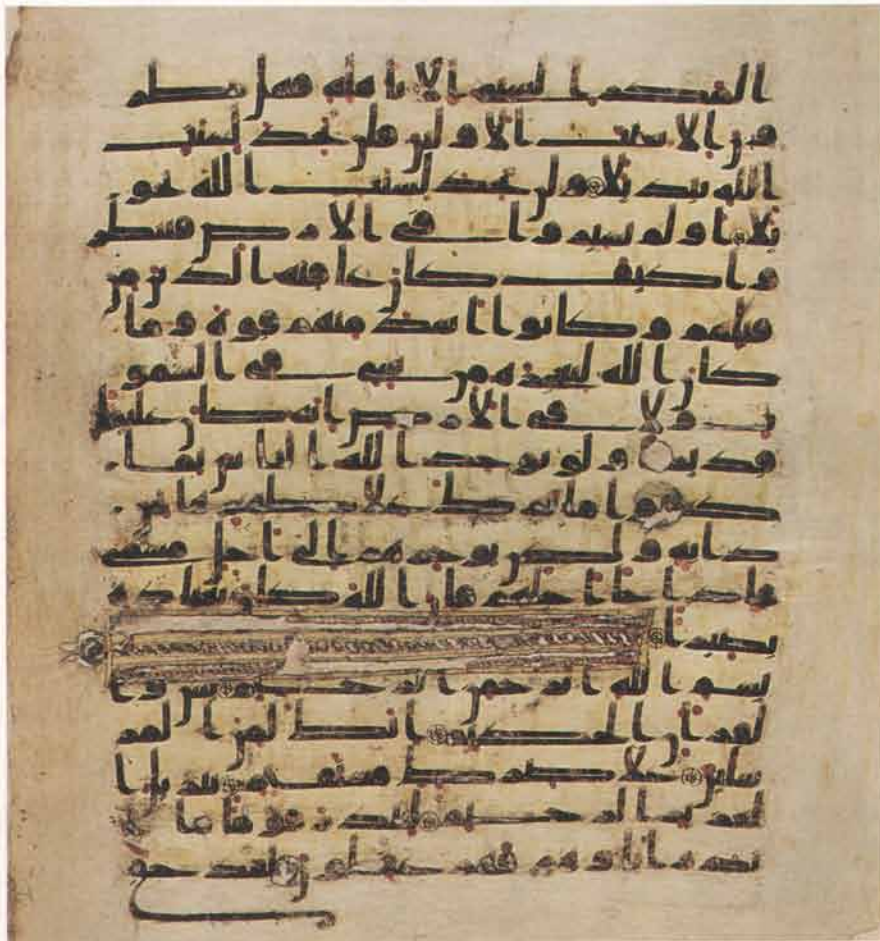 المكر السيى الا باهله فهل ينظر
ون الا سنت الاولين فلن تجد لسنت
الله تبديلا ولن تجد لسنت الله تحو
يلا اولم يسيروا في الارض فينظر
وا كيف كان عاقبه الذين من
قبلهم وكانوا اشد منهم قوه وما
كان الله ليعجزه من شي في السمو
ت ولا في الارض انه كان عليما
قديرا ولو يوخذ الله الناس بما
كسبوا ما ترك على ظهرها من
دابه ولكن يوخرهم الى اجل مسمى
فاذا جا اجلهم فان الله كان بعباده
بصيرا
بسم الله الرحمن الرحيم يس وا
لقران الحكيم انك لمن المر
سلين على صرط مستقيم تنزيل ا
لعزيز الرحيم لتنذر قوما ما ا
نذر اباوهم فهم غفلون لقد حق